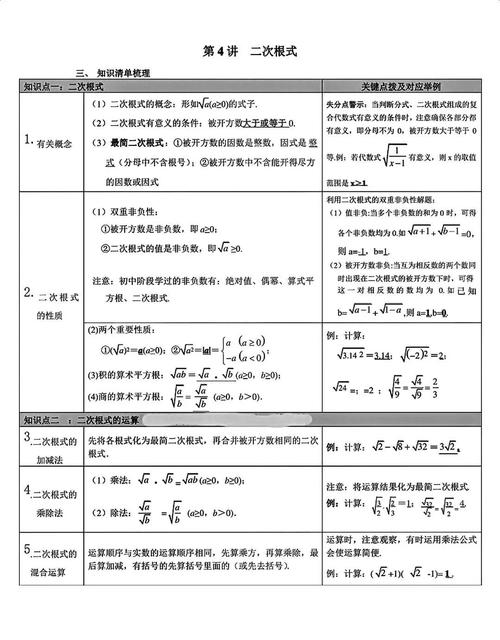 第 4 讲 二次根式
三、 知识清单梳理
知识点一：二次根式
关键点拨及对应举例
1.有关概念
（1）二次根式的概念：形如√a(a≥0)的式子.
（2）二次根式有意义的条件：被开方数大于或等于 0.
（3）最简二次根式：①被开方数的因数是整数，因式是整
式（分母中不含根号）；②被开方数中不含能开得尽方
的因数或因式
失分点警示：当判断分式、二次根式组成的复
合代数式有意义的条件时，注意确保各部分都
有意义，即分母不为 0，被开方数大于等于 0
等.例：若代数式√(1/(x−1))有意义，则 x 的取值
范围是 x>1.
2. 二次根式
的性质
（1）双重非负性：
①被开方数是非负数，即 a≥0；
②二次根式的值是非负数，即√a≥0.
注意：初中阶段学过的非负数有：绝对值、偶幂、算式平
方根、二次根式.
利用二次根式的双重非负性解题：
（1）值非负:当多个非负数的和为 0 时，可得
各个非负数均为 0.如√(a+1)+√(b−1)=0，
则 a=-1，b=1.
（2）被开方数非负:当互为相反数的两个数同
时出现在二次根式的被开方数下时，可得
这一对相反数的数均为 0.如已知
b=√(a−1)+√(1−a),则 a=1,b=0.
(2)两个重要性质：
①(√a)²=a(a≥0)；②√a²=|a|={a (a≥0) −a (a<0)；
(3)积的算术平方根：√ab=√a·√b(a≥0，b≥0)；
(4)商的算术平方根：√(a/b)=√a/√b (a≥0，b>0).
例：计算：
√3.14²=3.14；√(−2)²=2；
√24=；=2；√(4/9)=√4/√9=2/3
知识点二 ：二次根式的运算
3.二次根式的
加减法
先将各根式化为最简二次根式，再合并被开方数相同的二次
根式.
例：计算：√2−√8+√32=3√2.
4.二次根式的
乘除法
（1）乘法：√a·√b=√ab(a≥0，b≥0)；
（2）除法：√a/√b=√(a/b)(a≥0，b>0).
注意：将运算结果化为最简二次根式.
例：计算：√(3/2)·√(2/3)=1；√32/√2=√(32/2)=4.
5.二次根式的
混合运算
运算顺序与实数的运算顺序相同，先算乘方，再算乘除，最
后算加减，有括号的先算括号里面的（或先去括号）.
运算时，注意观察，有时运用乘法公式
会使运算简便.
例：计算：(√2+1)( √2 -1)= 1 .